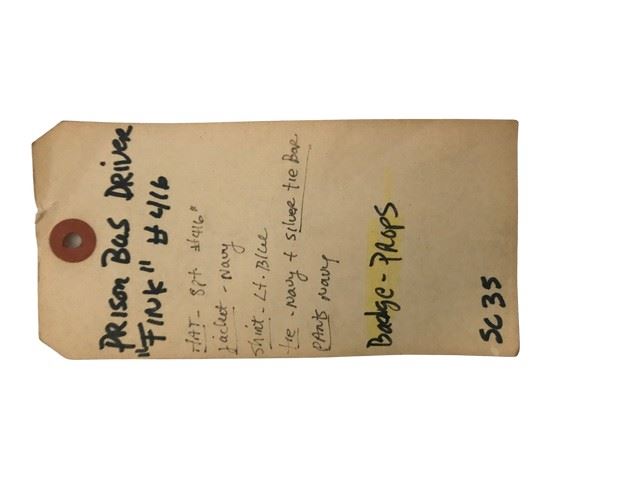 PRISON BUS DRIVER
"FINK" #416
HAT - 8pt #416"
Jacket - Navy
Shirt - Lt. Blue
tie - Navy + silver tie Bar
PANTS Navy
Badge - PROPS
SC 35